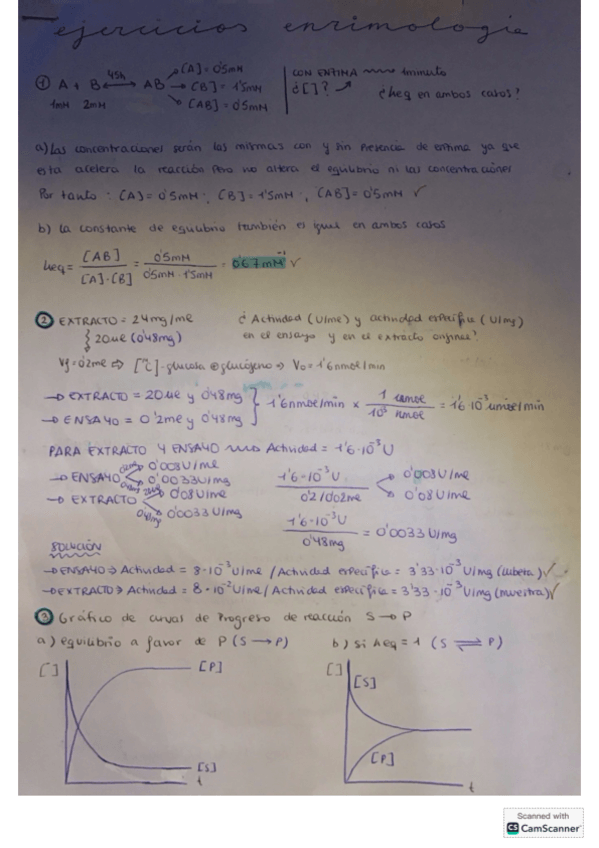 ejercicios enzimología
① A + B ⟷ AB → [A] = 0'5mM
45h
→ [B] = 1'5mM
1mM 2mM
→ [AB] = 0'5mM
CON ENZIMA 1minuto
¿[]?
¿Keq en ambos casos?
a) Las concentraciones serán las mismas con y sin presencia de enzima ya que
esta acelera la reacción pero no altera el equilibrio ni las concentraciones
Por tanto: [A] = 0'5mM, [B] = 1'5mM, [AB] = 0'5mM ✓
b) La constante de equilibrio también es igual en ambos casos
Keq = [AB] / [A]·[B] = 0'5mM / 0'5mM · 1'5mM = 0'67mM⁻¹ ✓
② EXTRACTO = 24mg/ml
¿Actividad (U/ml) y actividad específica (U/mg)
20μl (0'48mg)
en el ensayo y en el extracto original?
Vf = 0'2ml ⇒ [¹⁴C]-glucosa glucógeno ⇒ V₀ = 1'6nmol/min
→ EXTRACTO = 20μl y 0'48mg
→ ENSAYO = 0'2ml y 0'48mg
1'6nmol/min × 1 μmol / 10³ nmol = 1'6·10⁻³ μmol/min
PARA EXTRACTO Y ENSAYO Actividad = 1'6·10⁻³ U
→ ENSAYO 0'008U/ml
0'0033U/mg
→ EXTRACTO 0'08U/ml
0'0033 U/mg
1'6·10⁻³ U / 0'2/0'02ml
0'008U/ml
0'08U/ml
1'6·10⁻³ U / 0'48mg = 0'0033 U/mg
SOLUCIÓN
→ ENSAYO ⇒ Actividad = 8·10⁻³ U/ml / Actividad específica = 3'33·10⁻³ U/mg (cubeta) ✓
→ EXTRACTO ⇒ Actividad = 8·10⁻² U/ml / Actividad específica = 3'33·10⁻³ U/mg (muestra) ✓
③ Gráfico de curvas de Progreso de reacción S → P
a) equilibrio a favor de P (S → P)
b) si Keq = 1 (S ⇌ P)
[]
[P]
[S]
t
[]
[S]
[P]
t
Scanned with
CS CamScanner